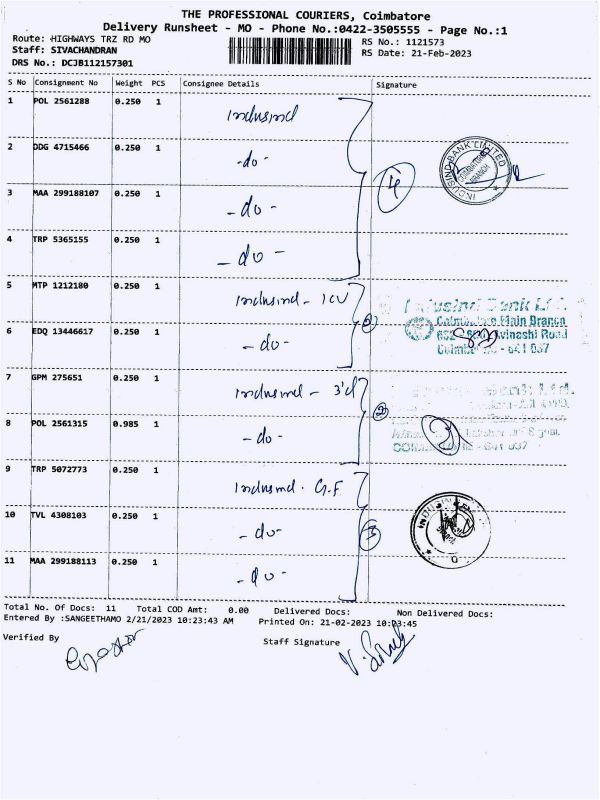 THE PROFESSIONAL COURIERS, Coimbatore
Delivery Runsheet - MO - Phone No.:0422-3505555 - Page No.:1
Route: HIGHWAYS TRZ RD MO
RS No.: 1121573
Staff: SIVACHANDRAN
RS Date: 21-Feb-2023
DRS No.: DCJB112157301
S No Consignment No Weight PCS Consignee Details Signature
1 POL 2561288 0.250 1 Indusind
2 DDG 4715466 0.250 1 -do-
INDUSIND BANK LIMITED
COIMBATORE
BRANCH
4
3 MAA 299188107 0.250 1 -do-
4 TRP 5365155 0.250 1 -do-
5 MTP 1212180 0.250 1 Indusind - ICU
IndusInd Bank Ltd.
Coimbatore Main Branch
Avinashi Road
6 EDQ 13446617 0.250 1 -do-
2
Coimbatore - 641 037
7 GPM 275651 0.250 1 Indusind -
Bank Ltd.
2
8 POL 2561315 0.985 1 -do-
641 037
9 TRP 5072773 0.250 1 Indusind. G.F
10 TVL 4308103 0.250 1 -do-
3
11 MAA 299188113 0.250 1 -do-
Total No. Of Docs: 11 Total COD Amt: 0.00 Delivered Docs: Non Delivered Docs:
Entered By :SANGEETHAMO 2/21/2023 10:23:43 AM Printed On: 21-02-2023 10:23:45
Verified By
Staff Signature